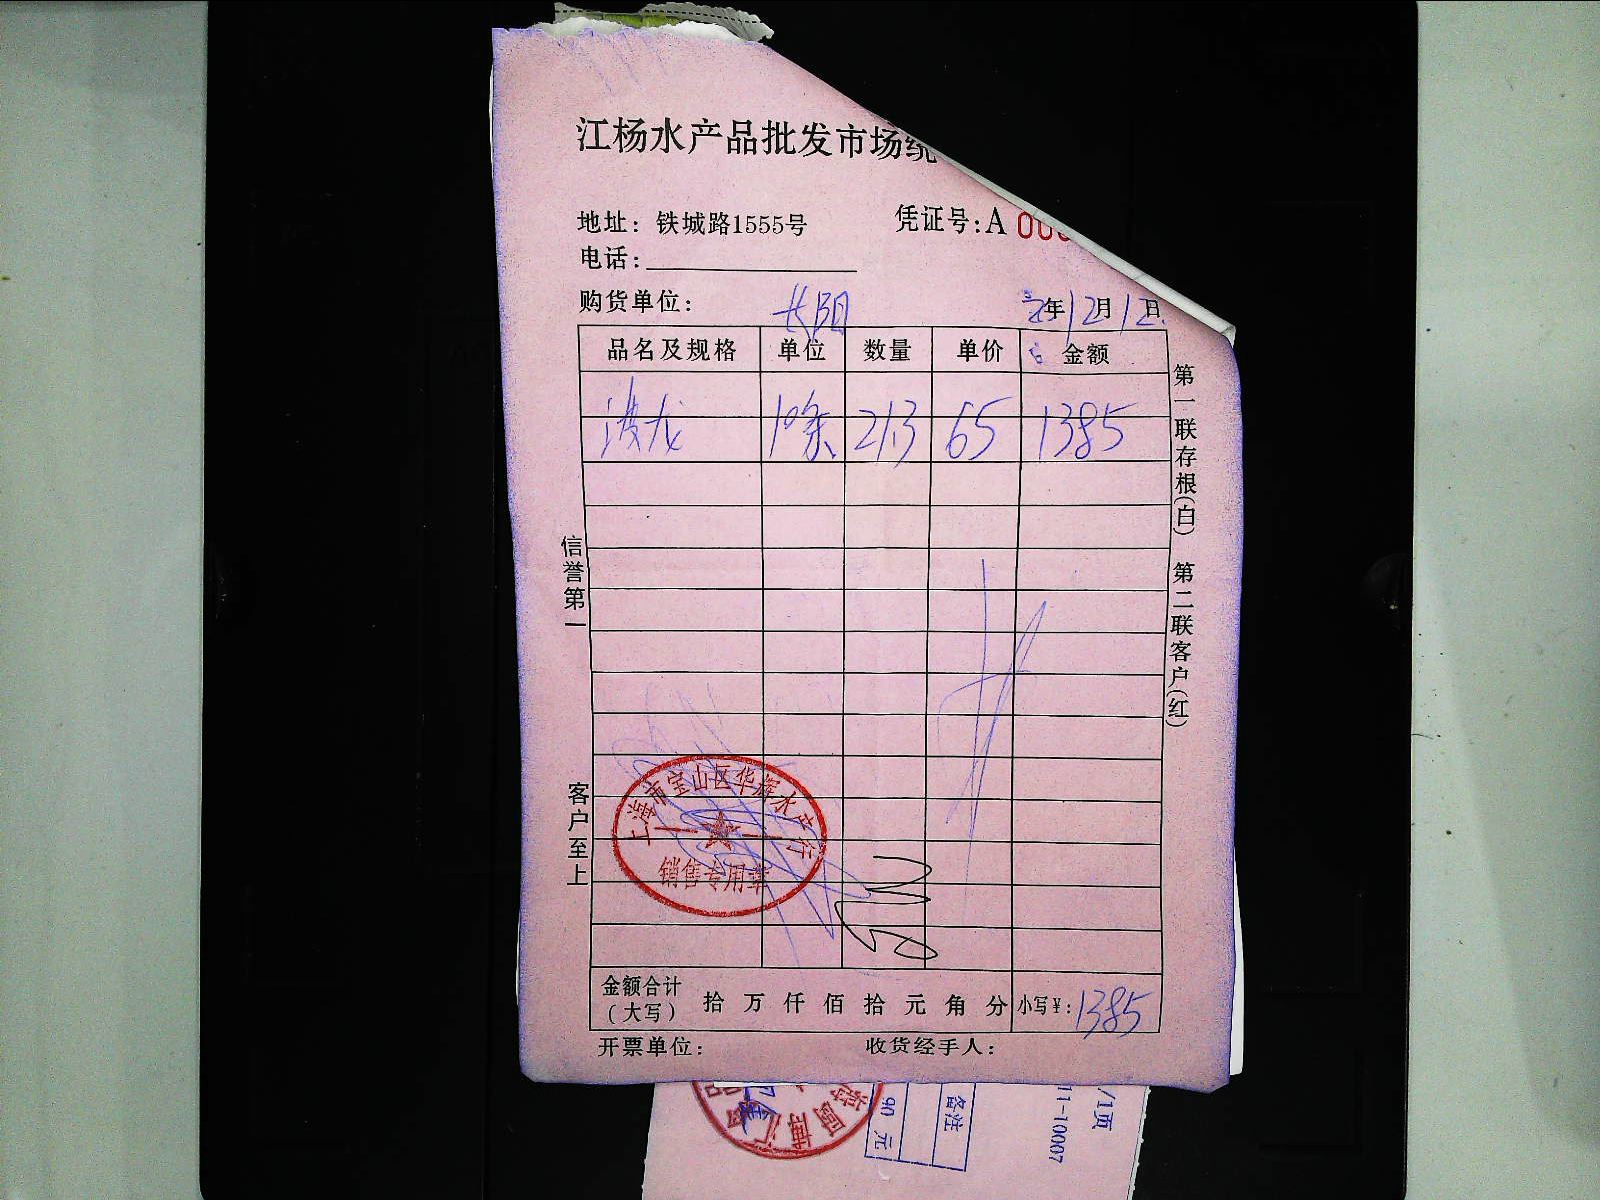 江杨水产品批发市场统
地址：铁城路1555号
凭证号：A 000
电话：
购货单位：长阳
年12月12日
品名及规格 单位 数量 单价 金额
波龙 10条 21.3 65 1385
信誉第一
客户至上
第一联存根(白) 第二联客户(红)
上海市宝山区华辉水产行
销售专用章
金额合计（大写） 拾 万 仟 佰 拾 元 角 分 小写¥：1385
开票单位： 收货经手人：
备注
90 元
/1页
11-10007